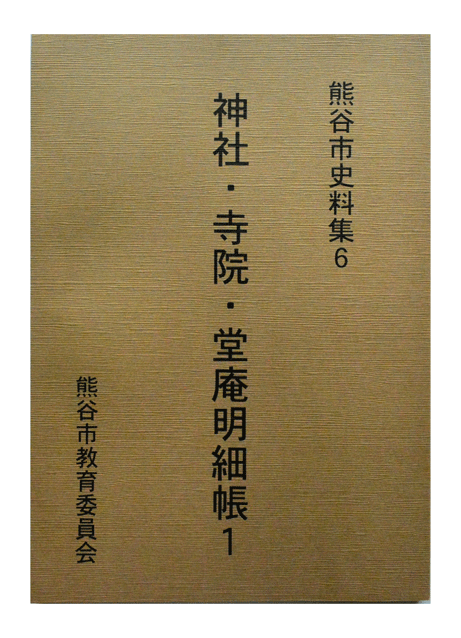 熊谷市史料集6
神社・寺院・堂庵明細帳1
熊谷市教育委員会